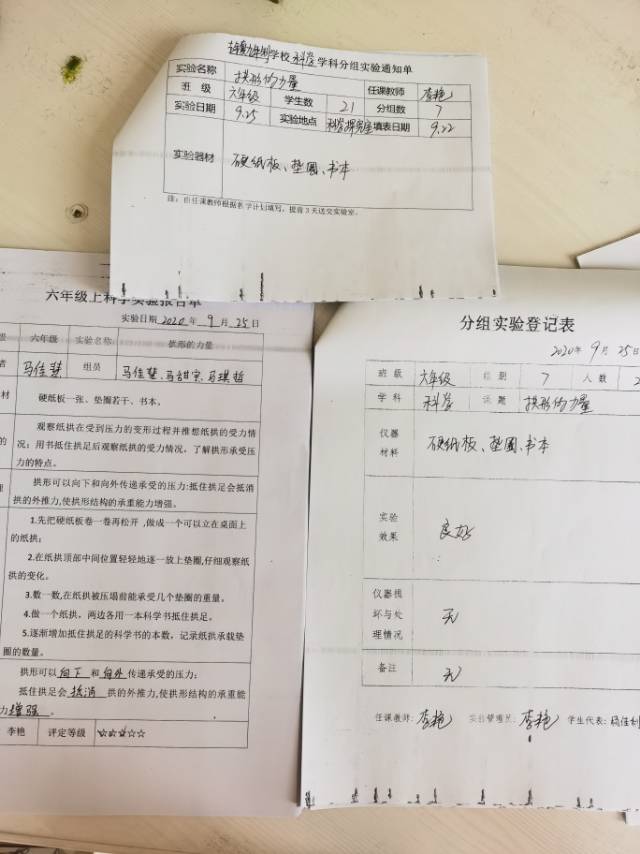 学校 科学 学科分组实验通知单
实验名称 拱形的力量 任课教师 李艳
班 级 六年级 学生数 21 分组数 7
实验日期 9.25 实验地点 科学探究室 填表日期 9.22
实验器材 硬纸板、垫圈、书本
注：由任课教师根据教学计划填写，提前3天送交实验室。
六年级上科学实验报告单
实验日期 2020 年 9 月 25 日
级 六年级 实验名称 拱形的力量
者 马佳慧 组员 马佳慧、马甜宇、马琪哲
材 硬纸板一张、垫圈若干、书本。
观察纸拱在受到压力的变形过程并推想纸拱的受力情
的 况；用书抵住拱足后观察纸拱的受力情况，了解拱形承受压
力的特点。
理 拱形可以向下和向外传递承受的压力;抵住拱足会抵消
拱的外推力,使拱形结构的承重能力增强。
1.先把硬纸板卷一卷再松开,做成一个可以立在桌面上
的纸拱;
2.在纸拱顶部中间位置轻轻地逐一放上垫圈,仔细观察纸
拱的变化。
3.数一数,在纸拱被压塌前能承受几个垫圈的重量。
4.做一个纸拱，两边各用一本科学书抵住拱足。
5.逐渐增加抵住拱足的科学书的本数，记录纸拱承载垫
圈的数量。
拱形可以 向下 和 向外 传递承受的压力;
抵住拱足会 抵消 拱的外推力,使拱形结构的承重能
力 增强 。
李艳 评定等级 ☆☆☆☆☆
分组实验登记表
2020年 9 月 25 日
班 级 六年级 组 别 7 人 数 2
学 科 科学 话 题 拱形的力量
仪器
材料 硬纸板、垫圈、书本
实验
效果 良好
仪器损
坏与处 无
理情况
备注 无
任课教师: 李艳 实验管理员: 李艳 学生代表: